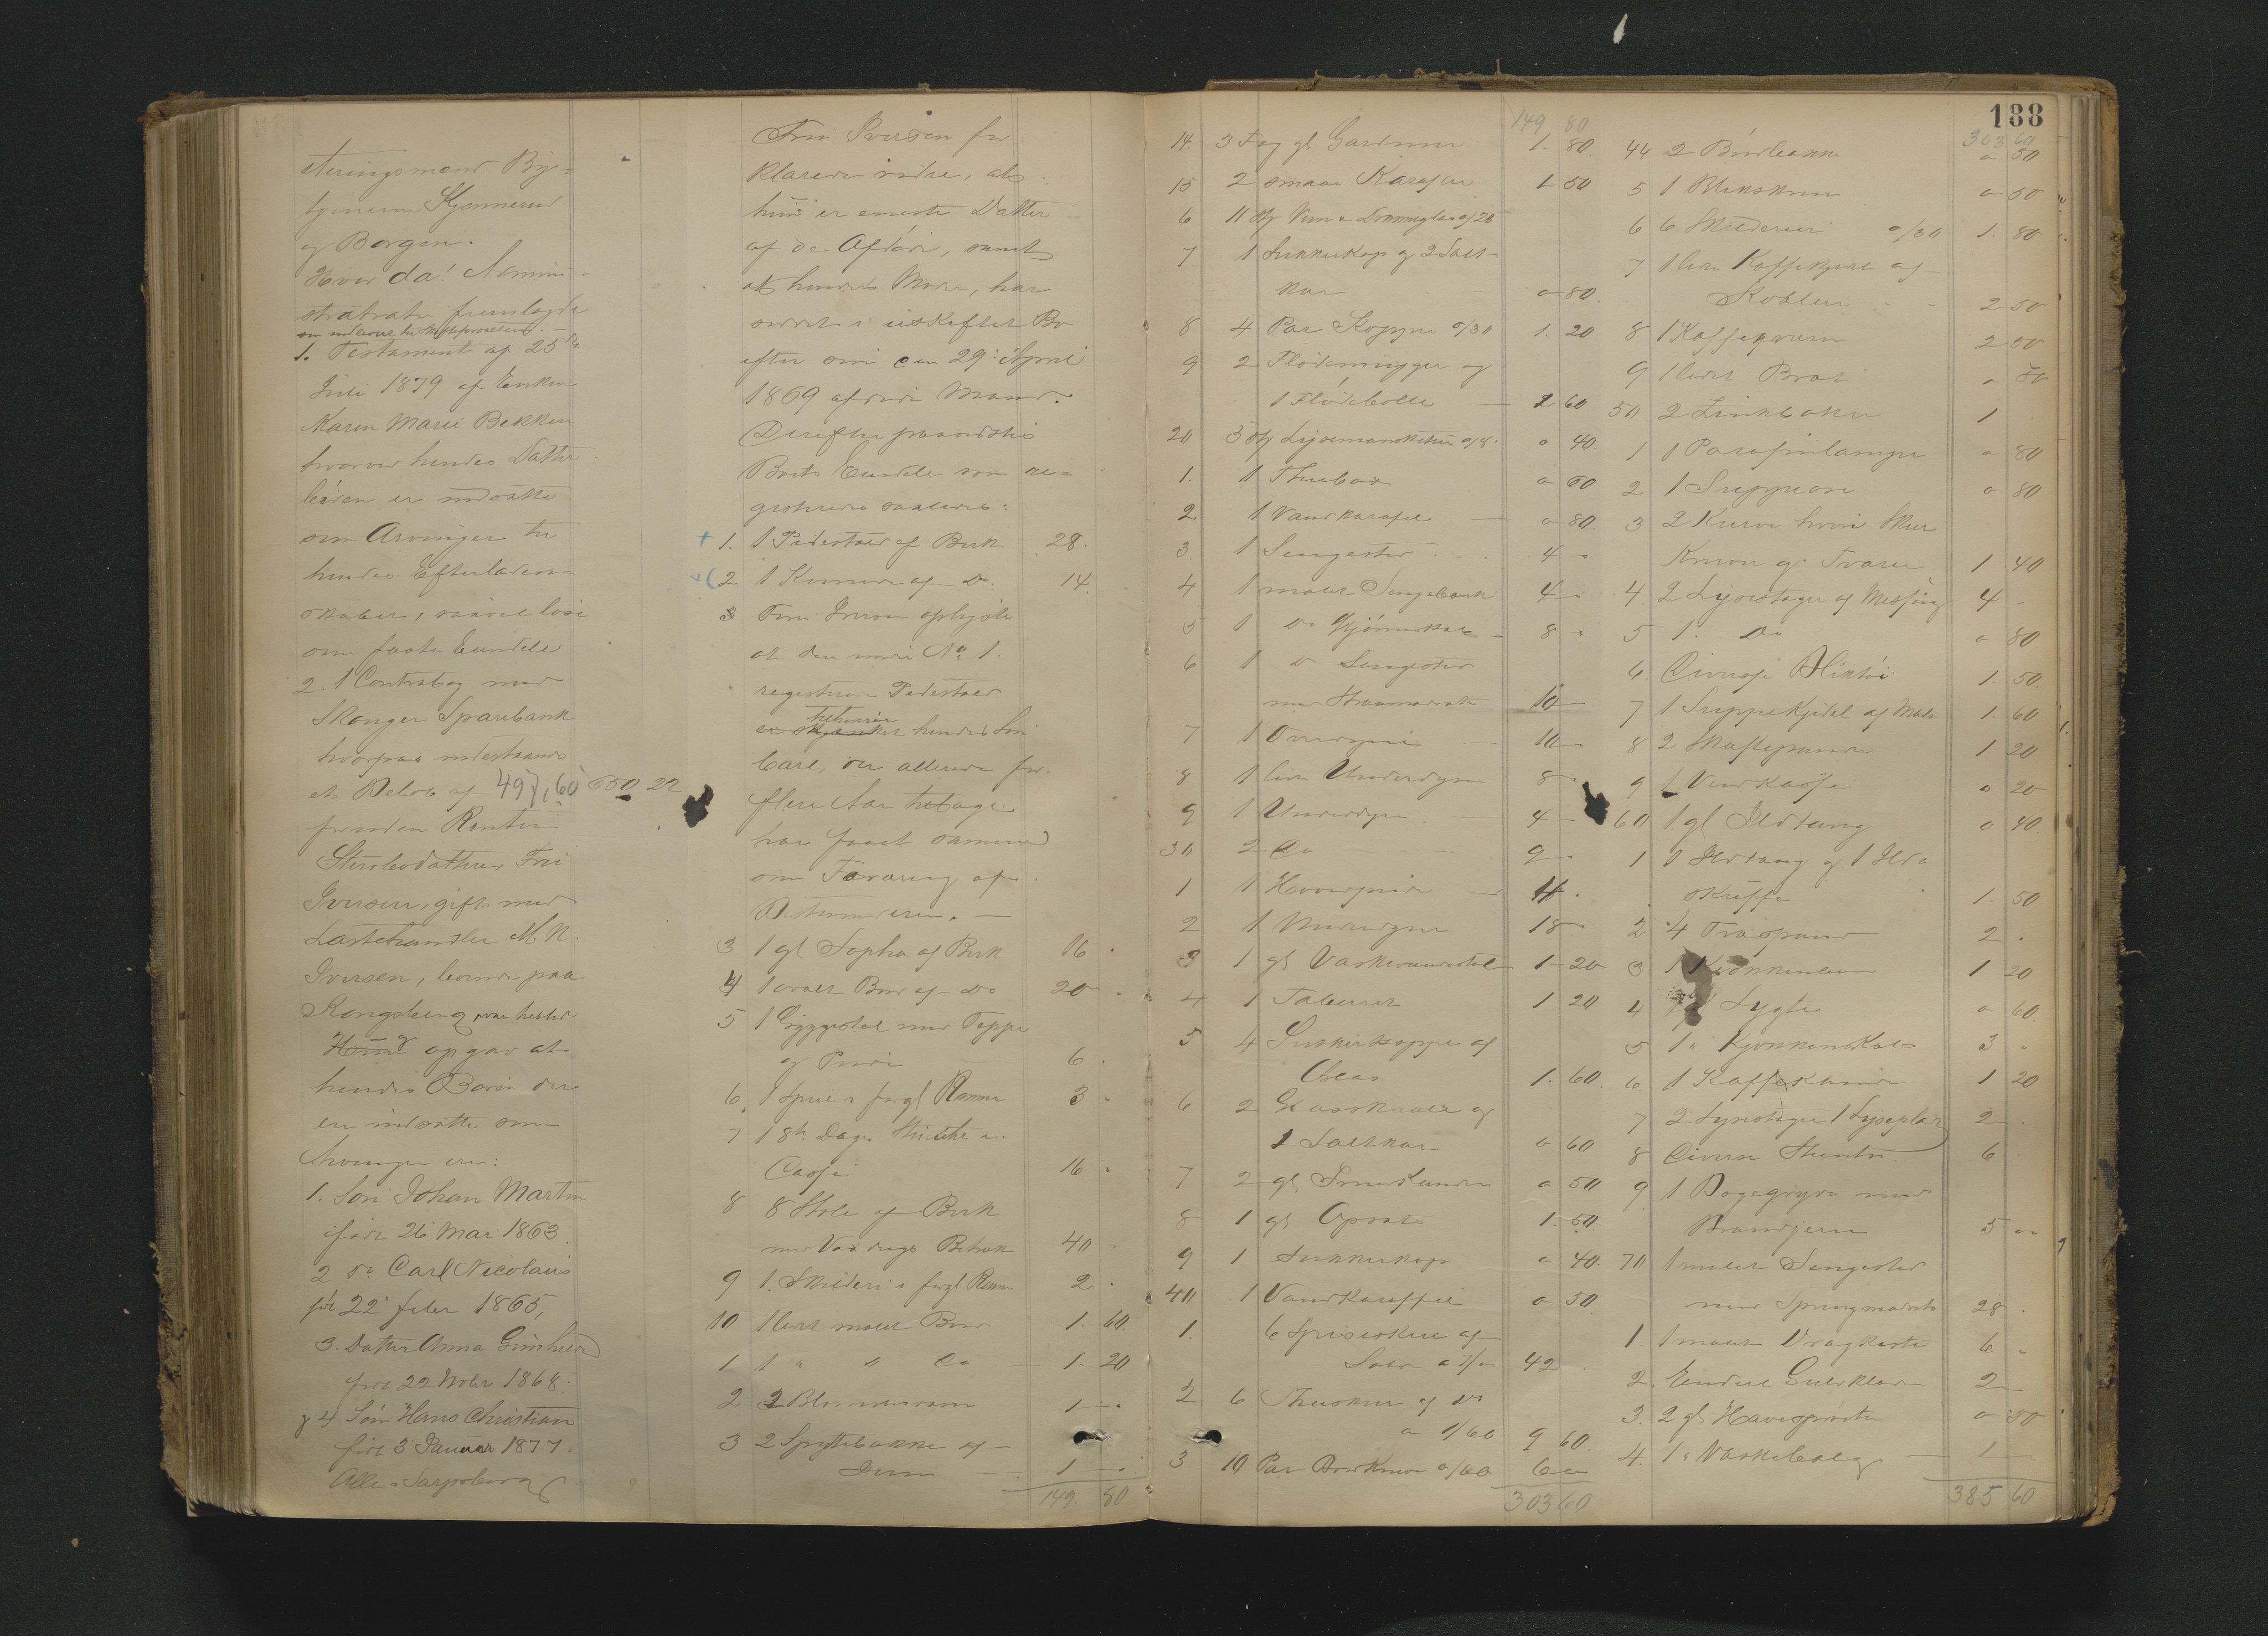 teringsmænd By=
tjenerne Kjønnerud
og Borgen.
Hvor da! Admini-
strator fremlagde
som indkomne til Skifteprotokollen. –
1. Testament af 25de
Juli 1879 af Enken
Karen Marie Bekken
hvorved hendes Datter
børn er indsatte
som Arvinger til
hendes Efterladen-
skaber, saavel løse
som faste Eiendele
2. 1 Contrabog med
Skoger Sparebank
hvorpaa indestaaende
et Beløb af 497,60 650 22
foruden Renter
Sterbodatteren Fru
Iversen, gift med
Lasthandler M. N.
Iversen, boende paa
Kongsberg, var tilstede
og opgav at
hendes Børn der
ere indsatte som
Arvinger ere:
1. Søn Johan Martin
født 26 Mai 1863.
2 do Carl Nicolais
født 22 febr 1865,
3. Datter Anna Gunhild
født 22 Novbr 1868.
og 4 Søn Hans Christian
født 3 Januar 1877.
Alle i Sarpsborg
Fru Iversen for
klarede videre, at
hun er eneste Datter
af de Afdøde, samt
at hendes Moder, har
siddet i uskiftet Bo
efter sin den 29 April
1869 afdøde Mand.
Derefter paavistes
Boets Eiendele som re=
gistreredes saaledes:
1. 1 Pidestal af Birk 28.
2 1 Komode af Do. 14.
3 Fru Iversen oplyste
at den under No 1.
registrerede Pidestal
tilhører
er skjænket hendes Søn
Carl, der allerede for
flere Aar tilbage
har faaet samme
som Foræring af
Testamentricen. –
3 1 gl Sopha af Birk 16
4 1 ovalt Bord af Do 20
5 1 Gyngestol med Teppe
og Pude 6
6. 1 Speil i forgl Ramme 3
7 1 8te Dags Stueuhr i
Casse 16
8 8 Stole af Birk
med Voxdugs Betræk 40
9 1. Skilderi i forgl Ramme 2
10 1 lidet malet Bord 1. 60
1 1 " " Do 1. 20
2 2 Blomstervaser 1
3 2 Spyttebakker af
Jern 1
149. 80
149 80
14. 3 Fag gl Gardiner 1. 80
15 2 smaa Karafler 1 50
6 11 stk Vin & Drammeglas a/20
7 1 Sukkerkop og 2 Salt-
kar " 80.
8 4 Par Kopper a/30 1. 20
9 2 Flødemugger og
1 Flødebolle 2 60
20 5 stk Lysemanschetter a/8. " 40.
1. 1 Thebox " 60
2 1 Vandkaraffel " 80.
3 1 Sengested 4 "
4 1 malet Sengebænk 4 "
5 1 Do Hjørneskab 8 "
6 1 Do Sengested
med Straamadrats 10 –
7 1 Overdyne 10 –
8 1 liden Underdyne 8
9 1 Underdyne 4 –
30 2 Do 9
1 1 Hovedpude 4
2 1 Underdyne 18
3 1 gl Vaskevandstol 1 20
4 1 Taburet 1 20
5 4 Sukkerkopper af
Glas 1. 60.
6 2 Glasskaale og
1 Saltkar " 60
7 2 gl Smørkander " 50
8 1 gl Opsats 1. 50
9 1 Sukkerkop " 40.
40 1 Vandkaraffel " 50.
1. 6 Spiseskeer af
Sølv a 7/– 42
2 6 Theskeer af Do
a 1/60 9 60.
3 10 Par Bordknive a/60 6 "
303 60
188
303 60
44 2 Brødbakker " 80
5 1 Blikskrin " 50
6 6 Skilderier a/30 1. 80
7 1 liden Kaffekjedel af
Kobber 2 50
8 1 Kaffeqværn 2 50
9 1 lidet Bræt " 30
50 2 Zinkbakker 1
1 1 Parafinlampe " 80
2 1 Suppeøse " 80
3 2 Kurve hvori Skeer
Knive og Tvarer 1 40
4. 2 Lysestager af Messing 4
5 1. Do " 80
6. Diverse Bliktøi 1. 50.
7 1 Suppekjedel af Malm 1. 60
8 2 Skaftepander 1 20
9 1 Vedkasse " 20
60 1 gl Ildtang " 40
1 1 Ildtang og 1 Ild=
skuffe 1. 50
2 4 Træspand 2.
3 1 1 20
4 Lygte " 60.
5 1 " Kjøkkenskab 3
6. 1 Kaffekande 1 20
7 2 Lysestager 1 Lyseplade 2
8 Diverse Stentøi 6
9 1 Bagegryde med
Brandjern 5 "
70 1 malet Sengested
med Springmadrats 28
1. 1 malet Dragkiste 6
2. Endeel Gulvklæder 2 –
3. 2 gl Havesprøiter " 50
4. 1 " Vaskebalg 1
385 60